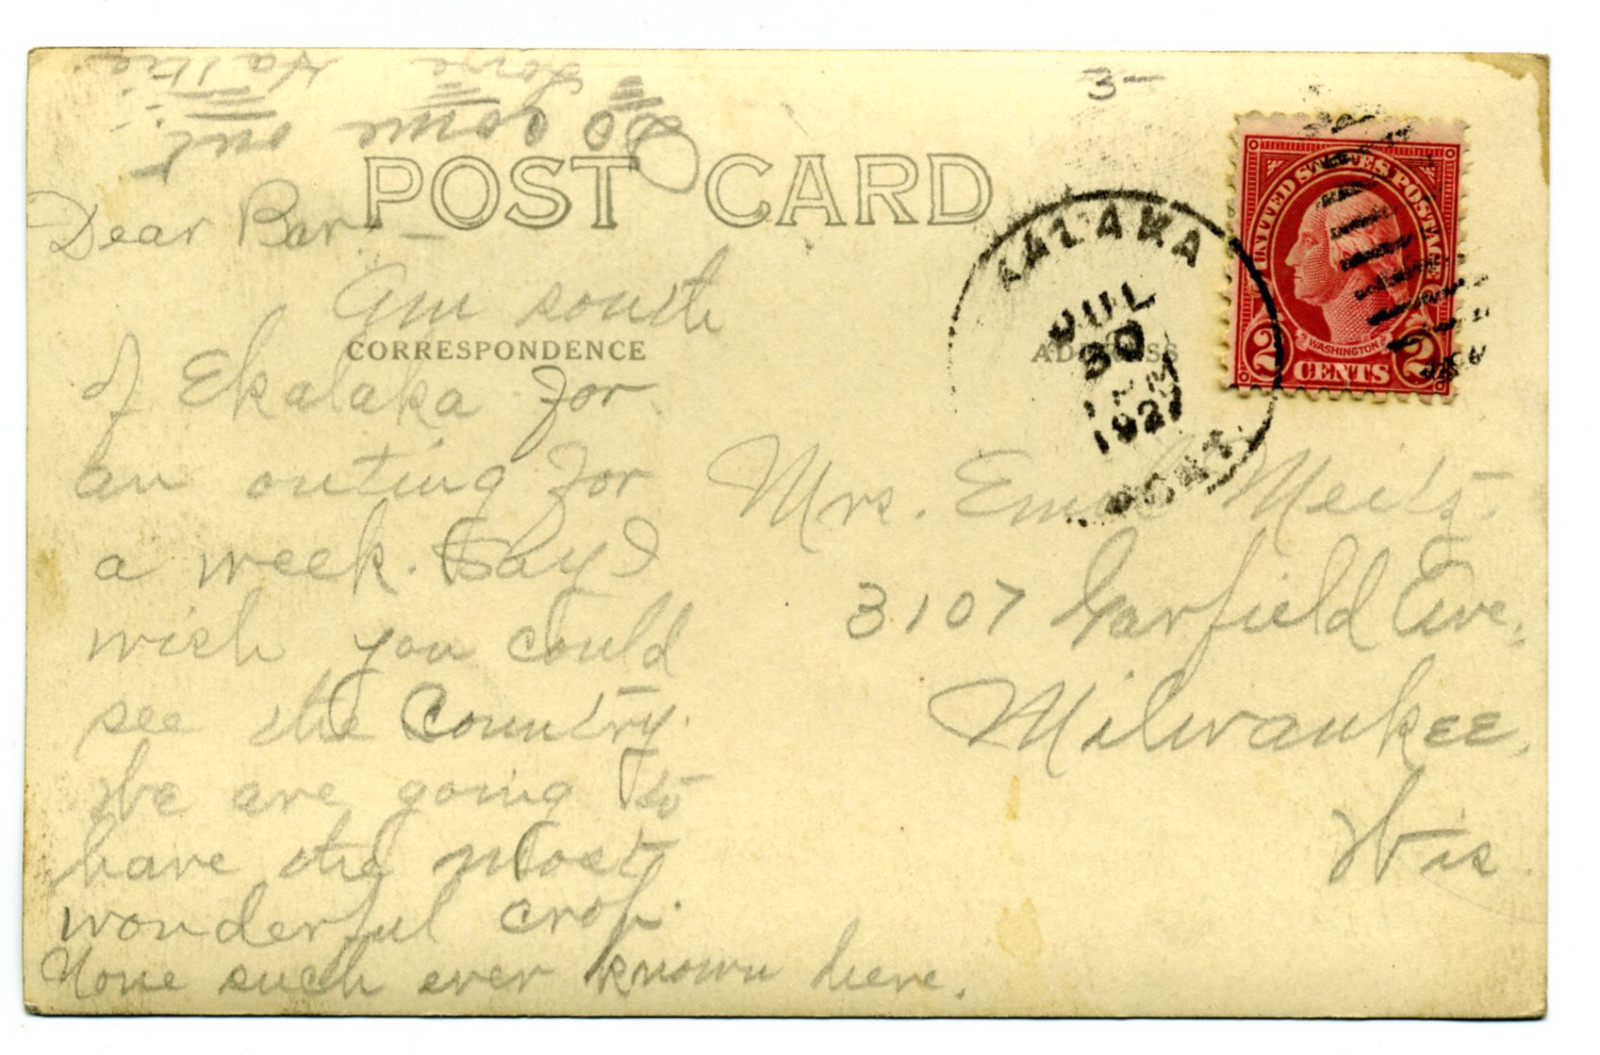 3-
POST CARD
CORRESPONDENCE
ADDRESS
UNITED STATES POSTAGE
WASHINGTON
2 CENTS 2
EKALAKA
JUL
30
192
MONT.
Dear Bar-
Am south
of Ekalaka for
an outing for
a week. Say I
wish you could
see the Country.
We are going to
have the most
wonderful crop.
None such ever known here.
Do come out!
Love
Hattie
Mrs. Emil Meitz.
3107 Garfield Ave,
Milwaukee,
Wis